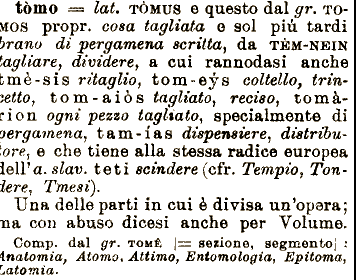 tòmo = lat. TÒMUS e questo dal gr. TO-
MOS propr. cosa tagliata e sol piú tardi
brano di pergamena scritta, da TÈM-NEIN
tagliare, dividere, a cui rannodasi anche
tmê-sis ritaglio, tom-eỳs coltello, trin-
cetto, tom-aiòs tagliato, reciso, tomà-
rion ogni pezzo tagliato, specialmente di
pergamena, tam-ías dispensiere, distribu-
tore, e che tiene alla stessa radice europea
dell'a. slav. teti scindere (cfr. Tempio, Ton-
dere, Tmesi).
Una delle parti in cui è divisa un'opera;
ma con abuso dicesi anche per Volume.
Comp. dal gr. TOMÊ [= sezione, segmento] :
Anatomia, Atomo, Attimo, Entomologia, Epitoma,
Latomia.